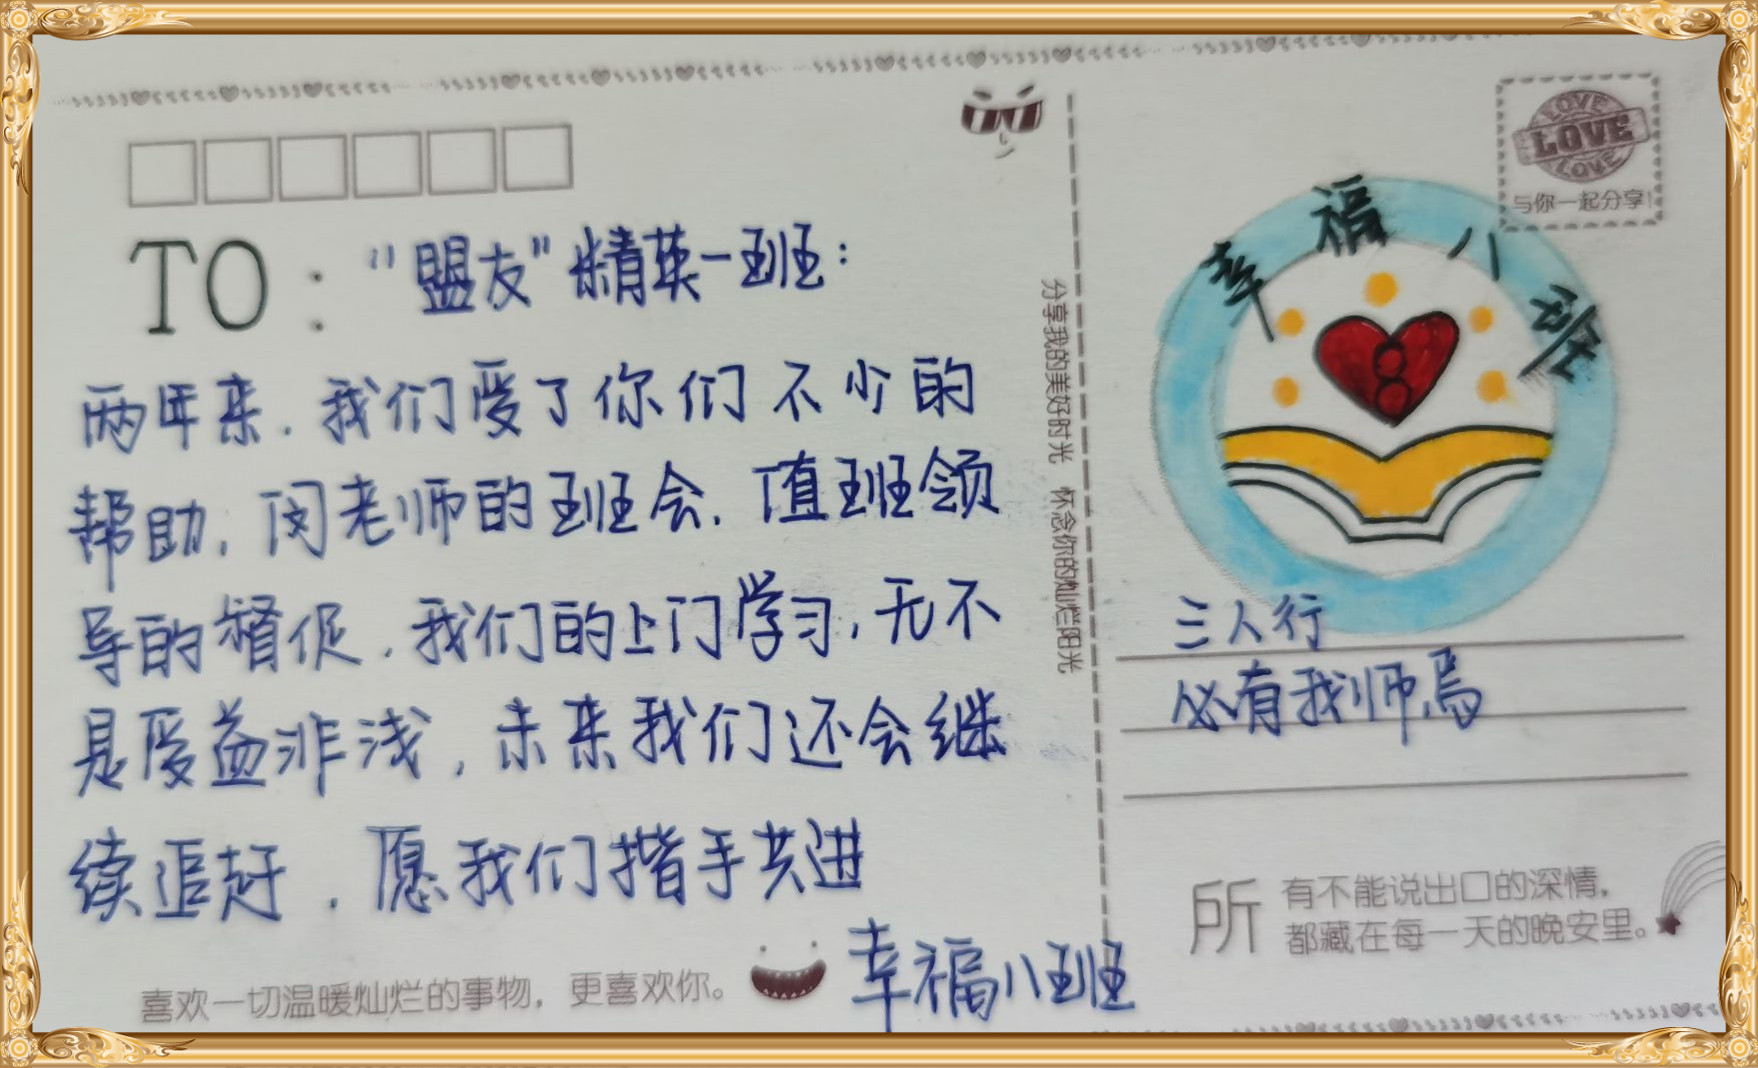 TO：“盟友”精英一班：
两年来，我们受了你们不少的
帮助，闵老师的班会，值班领
导的督促，我们的上门学习，无不
是受益非浅，未来我们还会继
续追赶，愿我们携手共进
幸福八班
喜欢一切温暖灿烂的事物，更喜欢你。
分享我的美好时光 怀念你的灿烂阳光
LOVE
LOVE
LOVE
与你一起分享!
幸福八班
8
三人行
必有我师焉
所有不能说出口的深情，
都藏在每一天的晚安里。